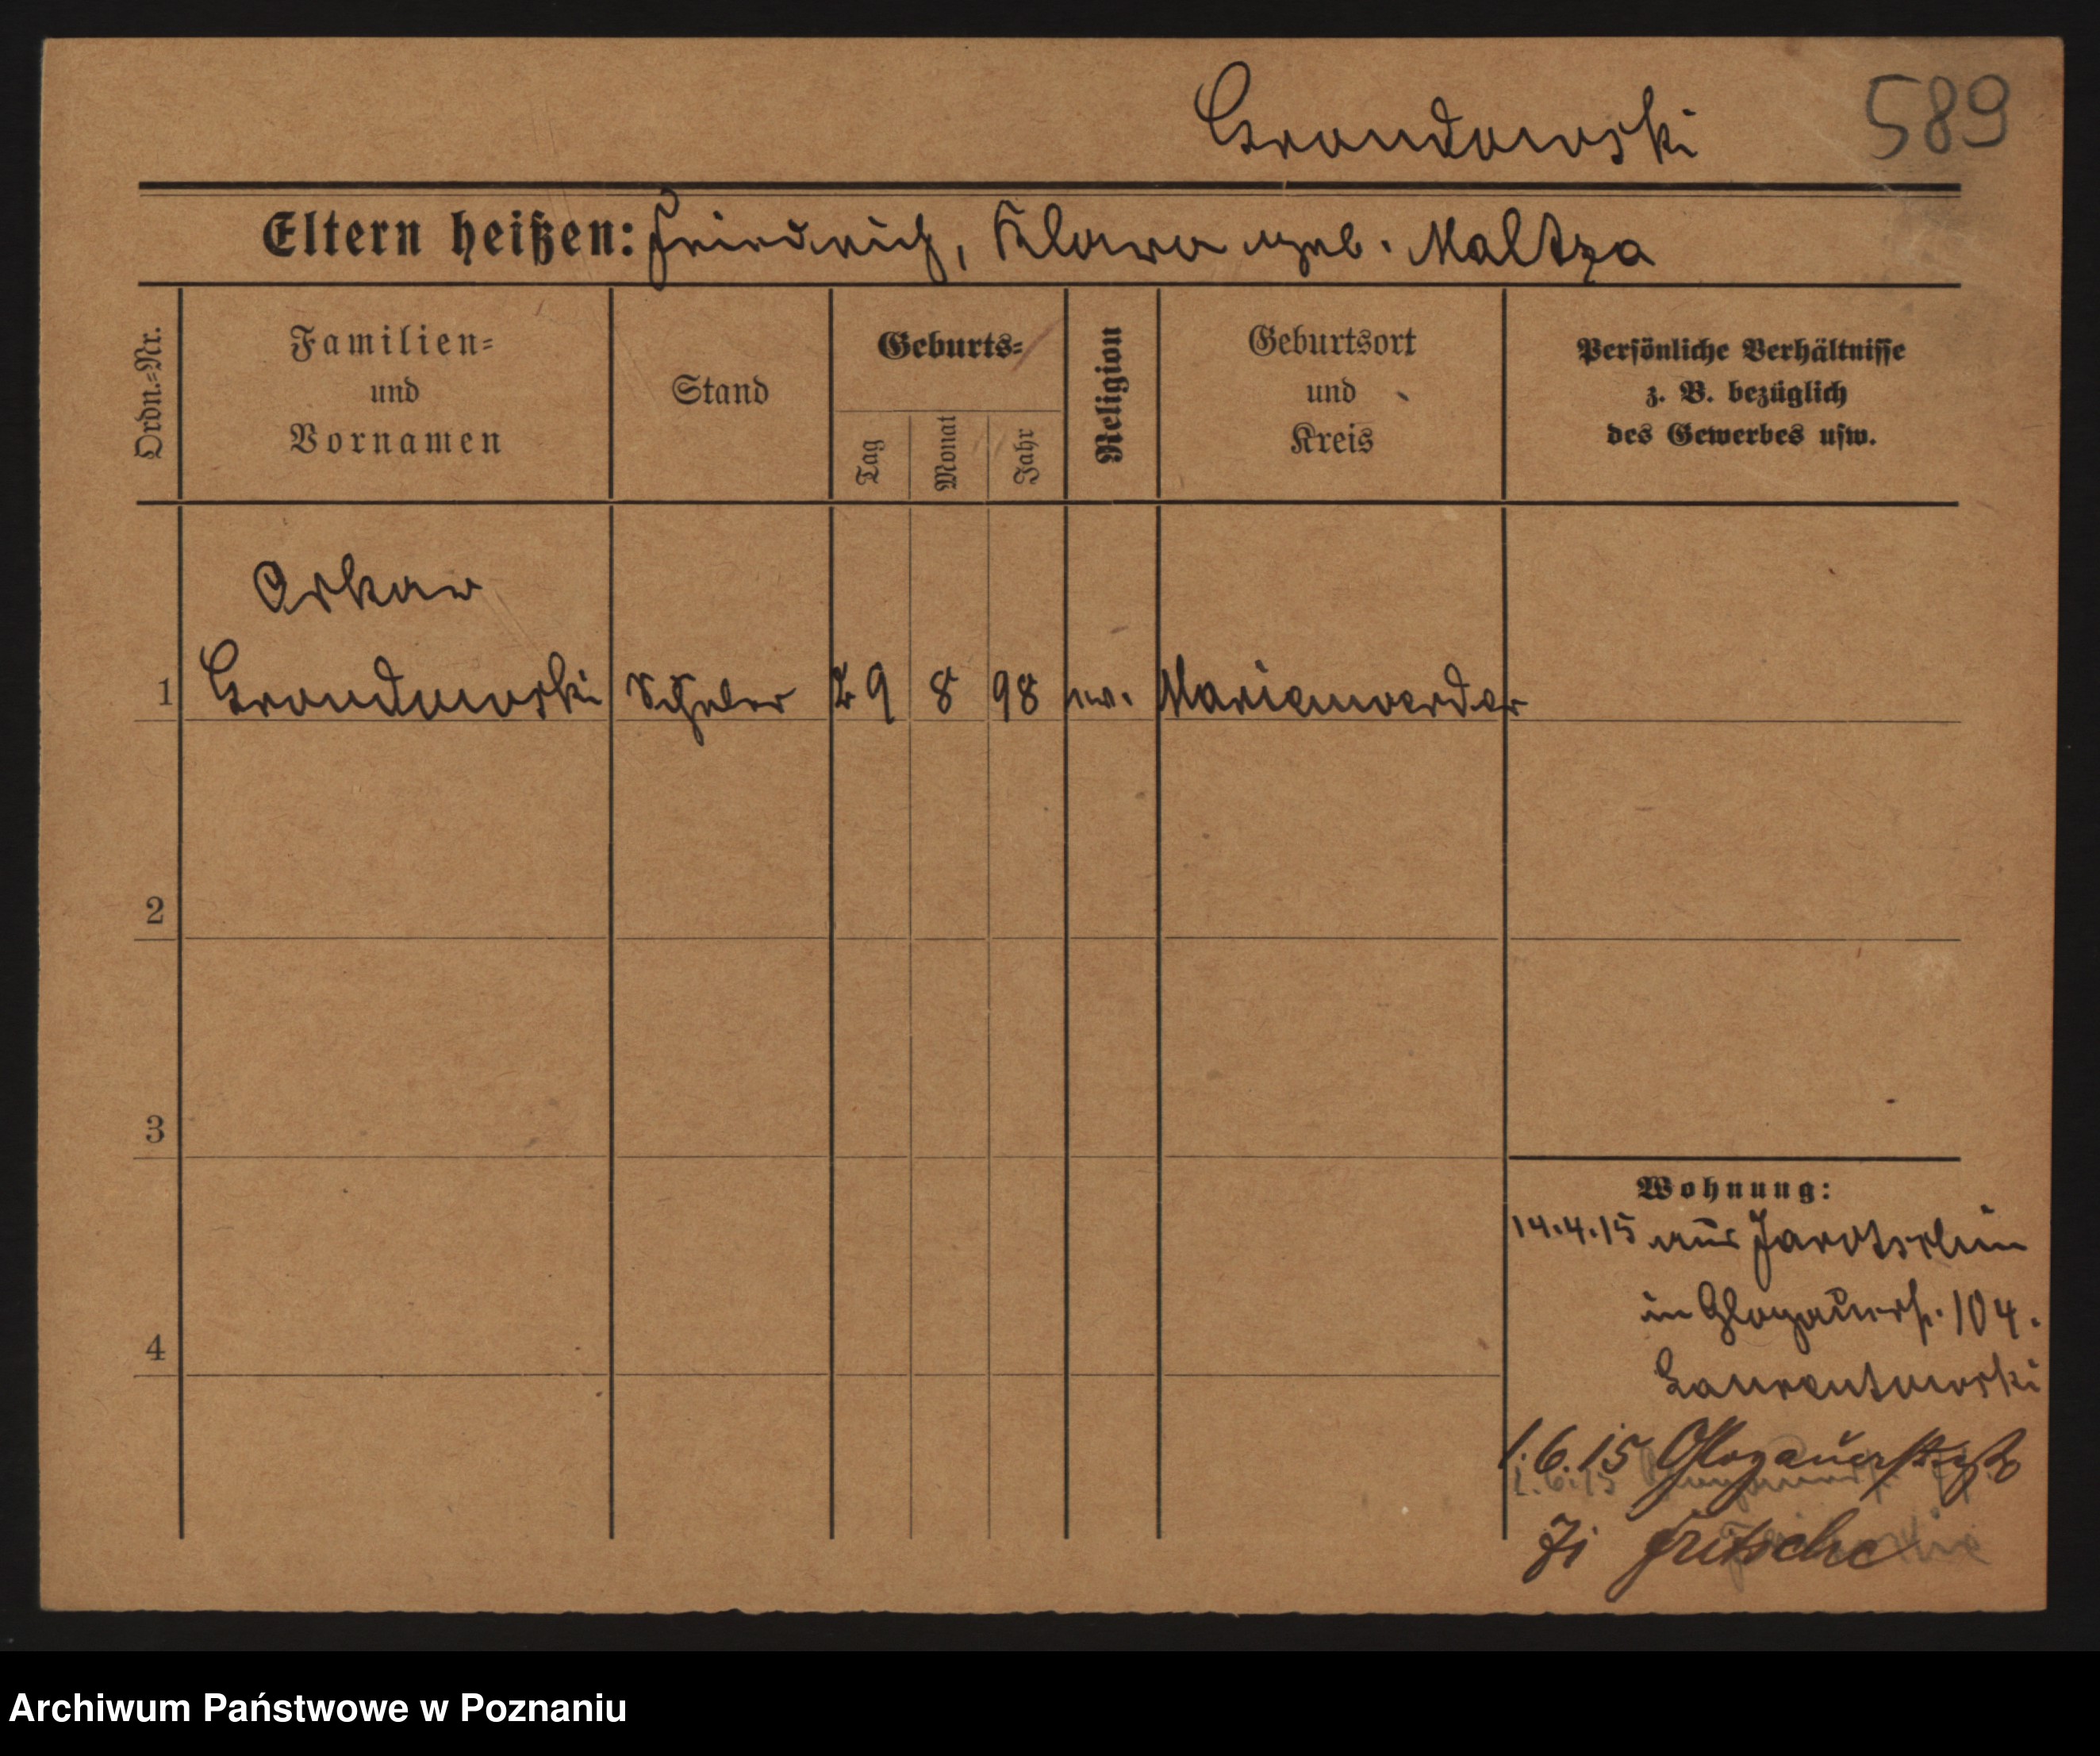 Grondowski 589
Eltern heißen: Friedrich, Klara geb. Maltza
Ordn.=Nr.
Familien=
und
Vornamen
Stand
Geburts=
Tag
Monat
Jahr
Religion
Geburtsort
und
Kreis
Persönliche Verhältnisse
z. B. bezüglich
des Gewerbes usw.
Oskar
1 Grondowski Schüler 29 8 98 ev. Marienwerder
2
3
4
Wohnung:
14.4.15 aus Jarotschin
in Glogauerstr. 104.
Laurentowski
1.6.15 Glogauerstr
Fritsche
Archiwum Państwowe w Poznaniu